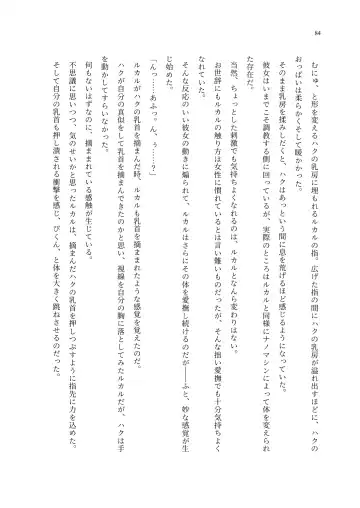 84
むにゅ、と形を変えるハクの乳房に埋もれるルカルの指。広げた指の間にハクの乳房が溢れ出すほどに、ハクの
おっぱいは柔らかくそして暖かかった。
そのまま乳房を揉みしだくと、ハクはあっという間に息を荒げるほど感じるようになっていた。
彼女はいまでこそ調教する側に回っているが、実際のところはルカルと同様にナノマシンによって体を変えられ
た存在だ。
当然、ちょっとした刺激でも気持ちよくなれるのは、ルカルとなんら変わりはない。
お世辞にもルカルの触り方は女性に慣れているとは言い難いものだったが、そんな拙い愛撫でも十分気持ちよく
なれていた。
そんな反応のいい彼女の動きに煽られて、ルカルはさらにその体を愛撫し続けるのだが――ふと、妙な感覚が生
じ始めた。
「んっ……あふっ。ん、ぅ……？」
ルカルがハクの乳首を摘まんだ時、ルカルも乳首を摘まれたような感覚を覚えたのだ。
ハクが自分の真似をして乳首を摘まんできたのかと思い、視線を自分の胸に落としてみたルカルだが、ハクは手
を動かしてすらいなかった。
何もないはずなのに、摘まれている感触が生じている。
不思議に思いつつ、気のせいかと思ったルカルは、摘まんだハクの乳首を押しつぶすように指先に力を込めた。
そして自分の乳首も押し潰される衝撃を感じ、びくん、と体を大きく跳ねさせるのだった。